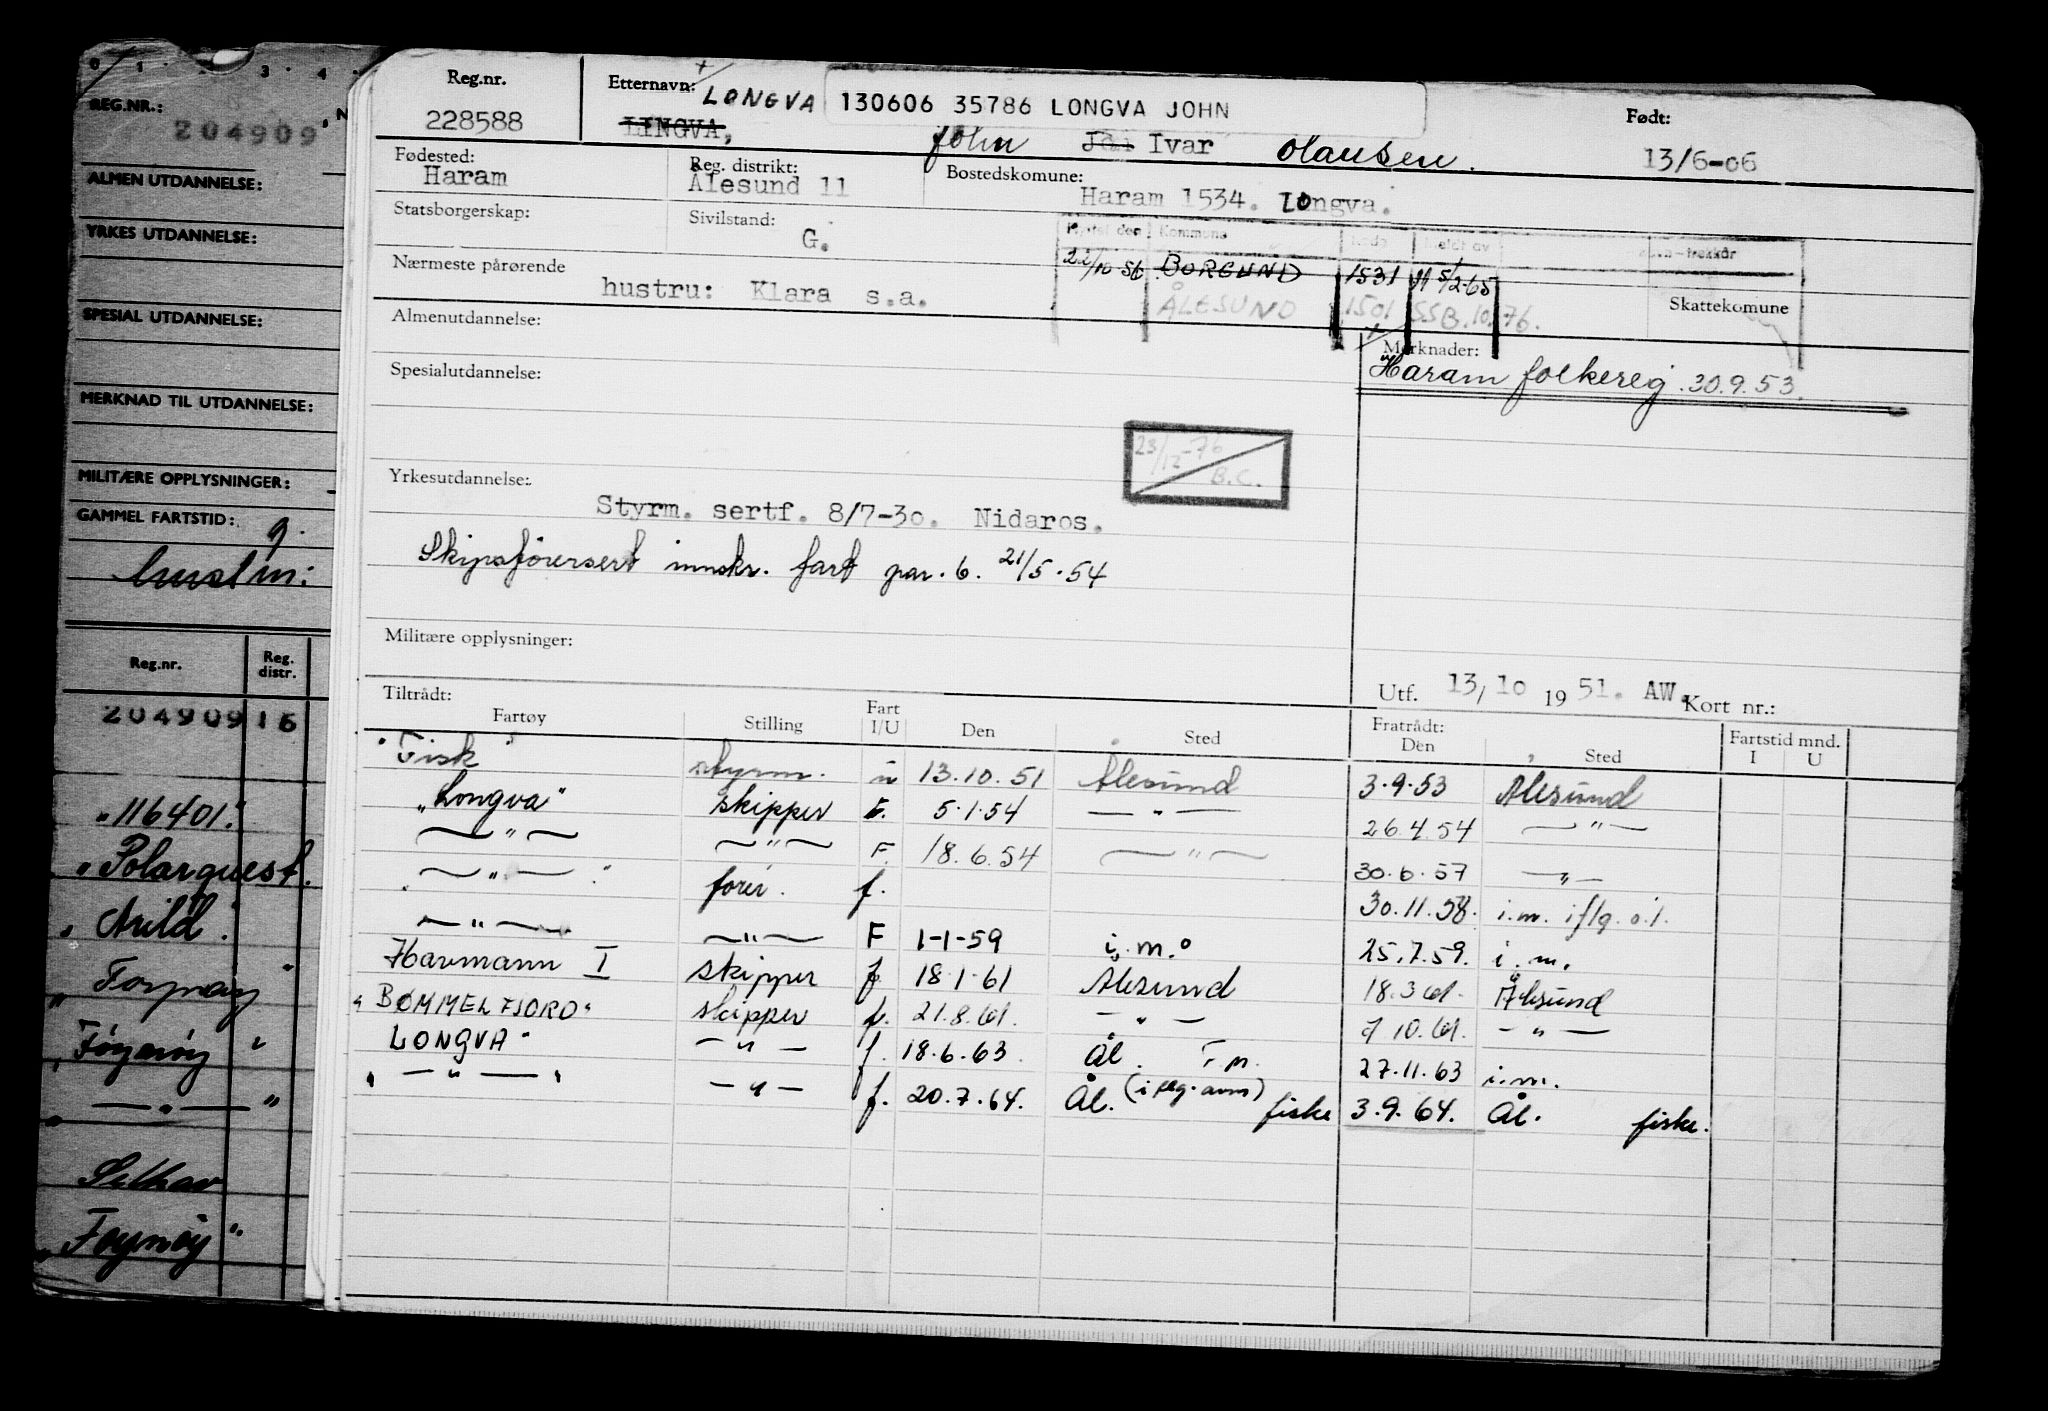 0 1 3 4
REG.NR.: N
204909
ALMEN UTDANNELSE:
YRKES UTDANNELSE:
SPESIAL UTDANNELSE:
MERKNAD TIL UTDANNELSE:
MILITÆRE OPPLYSNINGER:
GAMMEL FARTSTID: g.
Reg.nr. Reg. distr.
204909 16
"116401."
"Polarquest."
"Arild."
"Føynøy"
" — " — "
Selhav
"Føynøy"
Reg.nr. Etternavn: LONGVA 130606 35786 LONGVA JOHN Født:
228588 LINGVA, John Ivar Olausen. 13/6-06
Fødested: Reg. distrikt: Bostedskommune:
Haram Ålesund 11 Haram 1534. Longva.
Statsborgerskap: Sivilstand: G.
Flyttet den Kommune Kode Meldt av
22/10 56 BORGUND 1531 5/2-65
Nærmeste pårørende
hustru: Klara s.a.
ÅLESUND 1501 SSB. 10/76. Skattekommune
Almenutdannelse: Merknader:
Haram folkereg. 30.9.53.
Spesialutdannelse:
23/12-76 B.C.
Yrkesutdannelse:
Styrm. sertf. 8/7-30. Nidaros.
Skipsførersert innskr. fart par. 6. 21/5.54
Militære opplysninger:
Utf. 13/10 1951. AW. Kort nr.:
Tiltrådt: Fratrådt:
Fartøy Stilling Fart I/U Den Sted Den Sted Fartstid mnd. I U
"Fisk" styrm. u 13.10.51 Ålesund 3.9.53 Ålesund
"Longva" skipper F. 5.1.54 — " — 26.4.54 — " —
— " — — " — F. 18.6.54 — " — 30.6.57 — " —
— " — fører. f. 30.11.58. i.m. iflg. o.l.
— " — — " — F 1-1-59 i.m. 25.7.59. i.m.
Havmann I skipper f. 18.1.61 Ålesund 18.3.61. Ålesund
"BØMMELFJORD" skipper f. 21.8.61. — " — 7.10.61. — " —
LONGVA" — " — f. 18.6.63. Ål. 27.11.63 i.m.
" — " — " — " — f. 20.7.64. Ål. fiske 3.9.64. Ål. fiske.